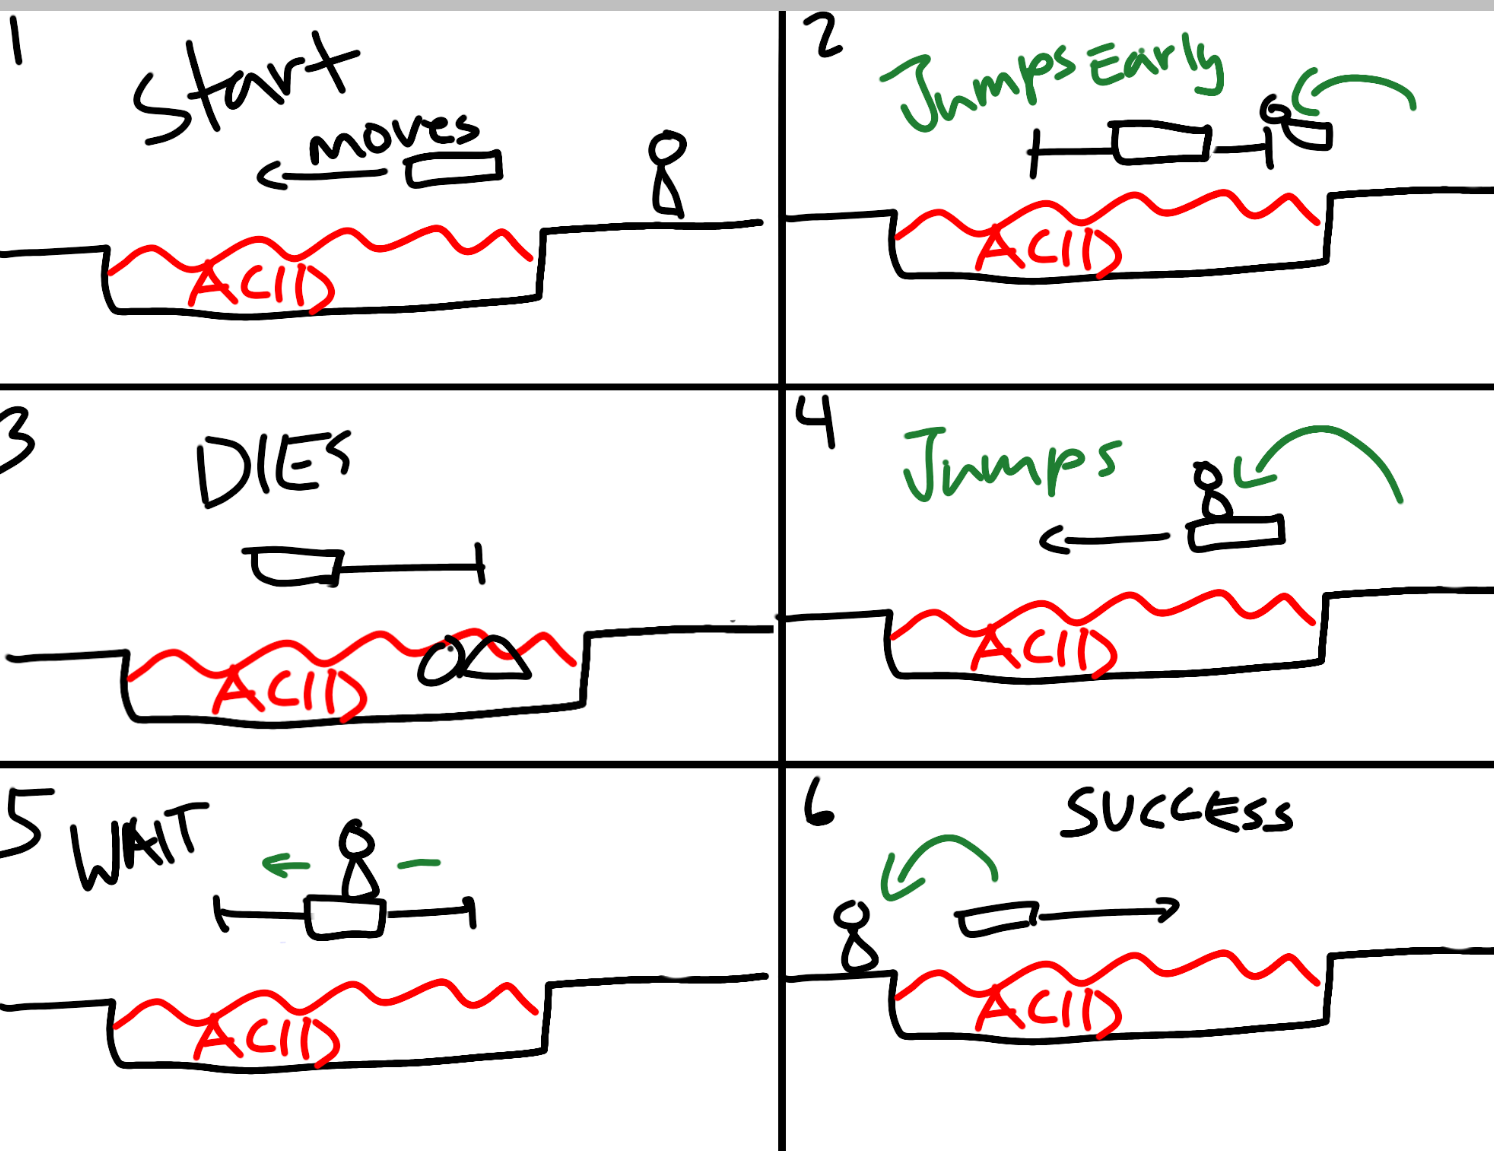 1
Start
moves
ACID
2
Jumps Early
ACID
3
DIES
ACID
4
Jumps
ACID
5
WAIT
ACID
6
SUCCESS
ACID